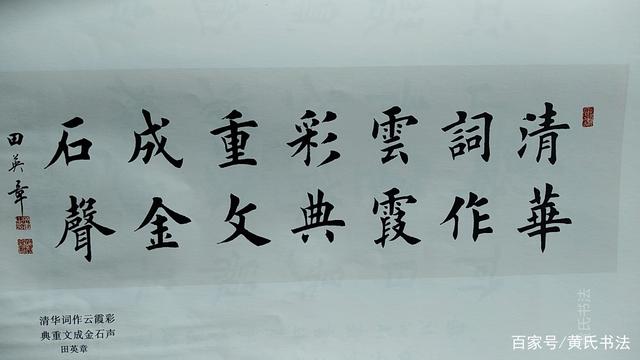 清華
詞作
雲霞
彩典
重文
成金
石聲
田英章
清华词作云霞彩
典重文成金石声
田英章
百家号/黄氏书法